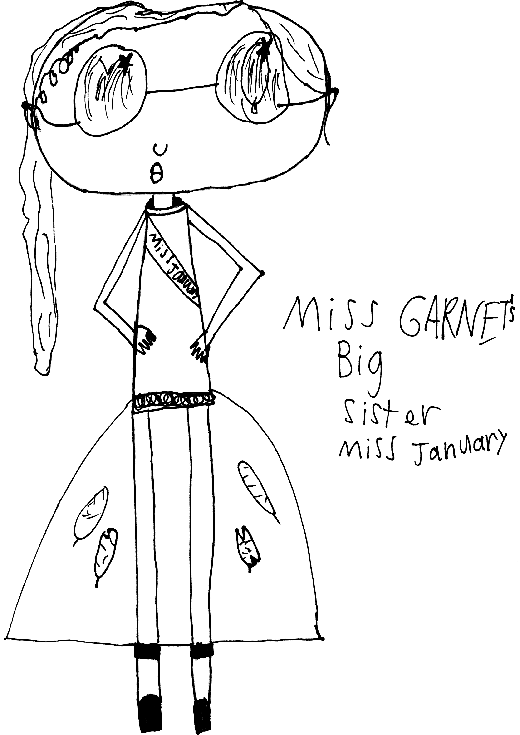 Miss January
Miss GARNET's
Big
sister
Miss January